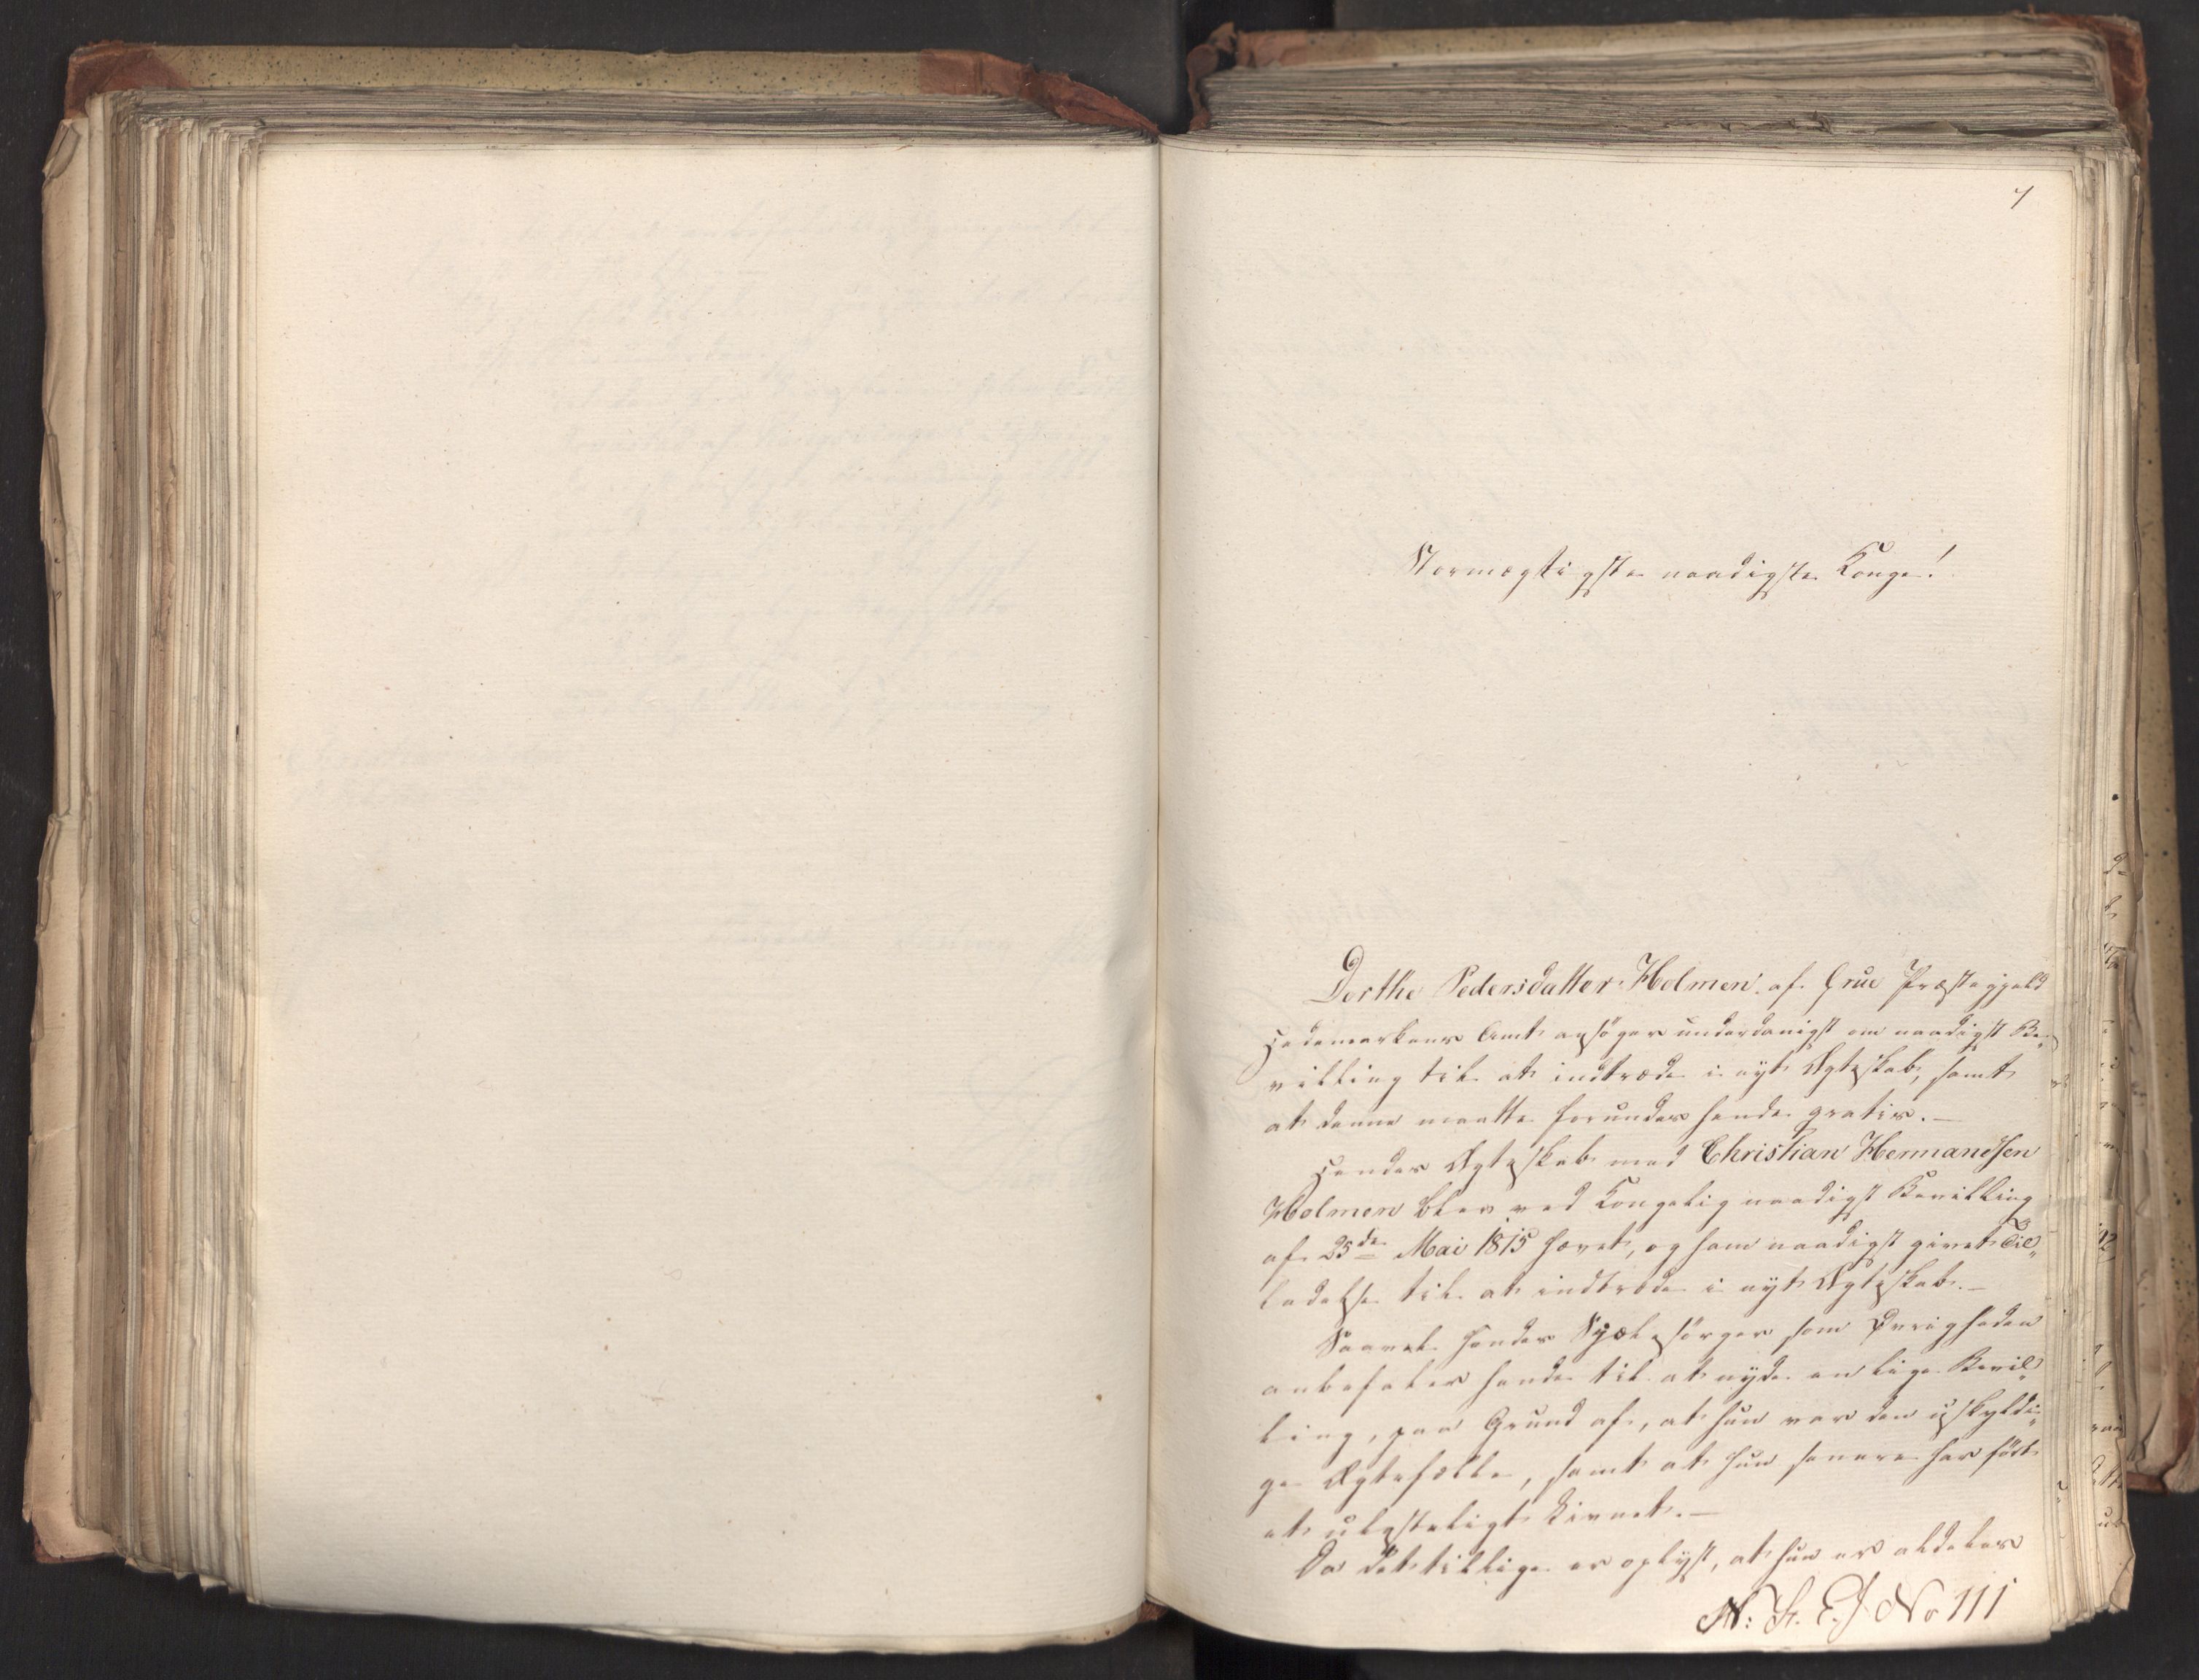 7
Stormægtigste naadigste Konge!
Dorthe Pedersdatter Holmen af Grue Præstegjeld
Hedemarkens Amt ansøger underdanigst om naadigst Be„
villing til at indtræde i nyt Ægteskab, samt
at denne maatte forundes hende gratis.—
Hendes Ægteskab med Christian Hermandsen
Holmen blev ved Kongelig naadigst Bevilling
af 25de Mai 1815 hævet, og ham naadigst givet Til„
ladelse til at indtræde i nyt Ægteskab.—
Saavel hendes Sjælesørger som Øvrigheden
anbefaler hende til at nyde en lige Bevil„
ling, paa Grund af, at hun var den uskyldi„
ge Ægtefælle, samt at hun senere har ført
et ulasteligt Levnet.—
Da det tillige er oplyst, at hun er aldeles
N: F. E. J No 111